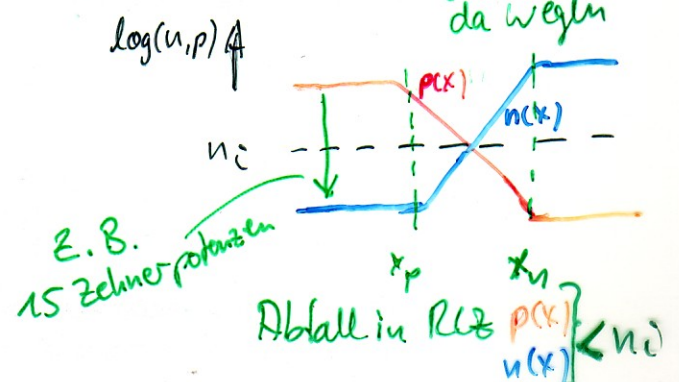 da wegen
log(n,p)
p(x)
n(x)
n i
z.B.
15 Zehnerpotenzen
x p
x n
Abfall in RLZ p(x)
n(x)
< n i